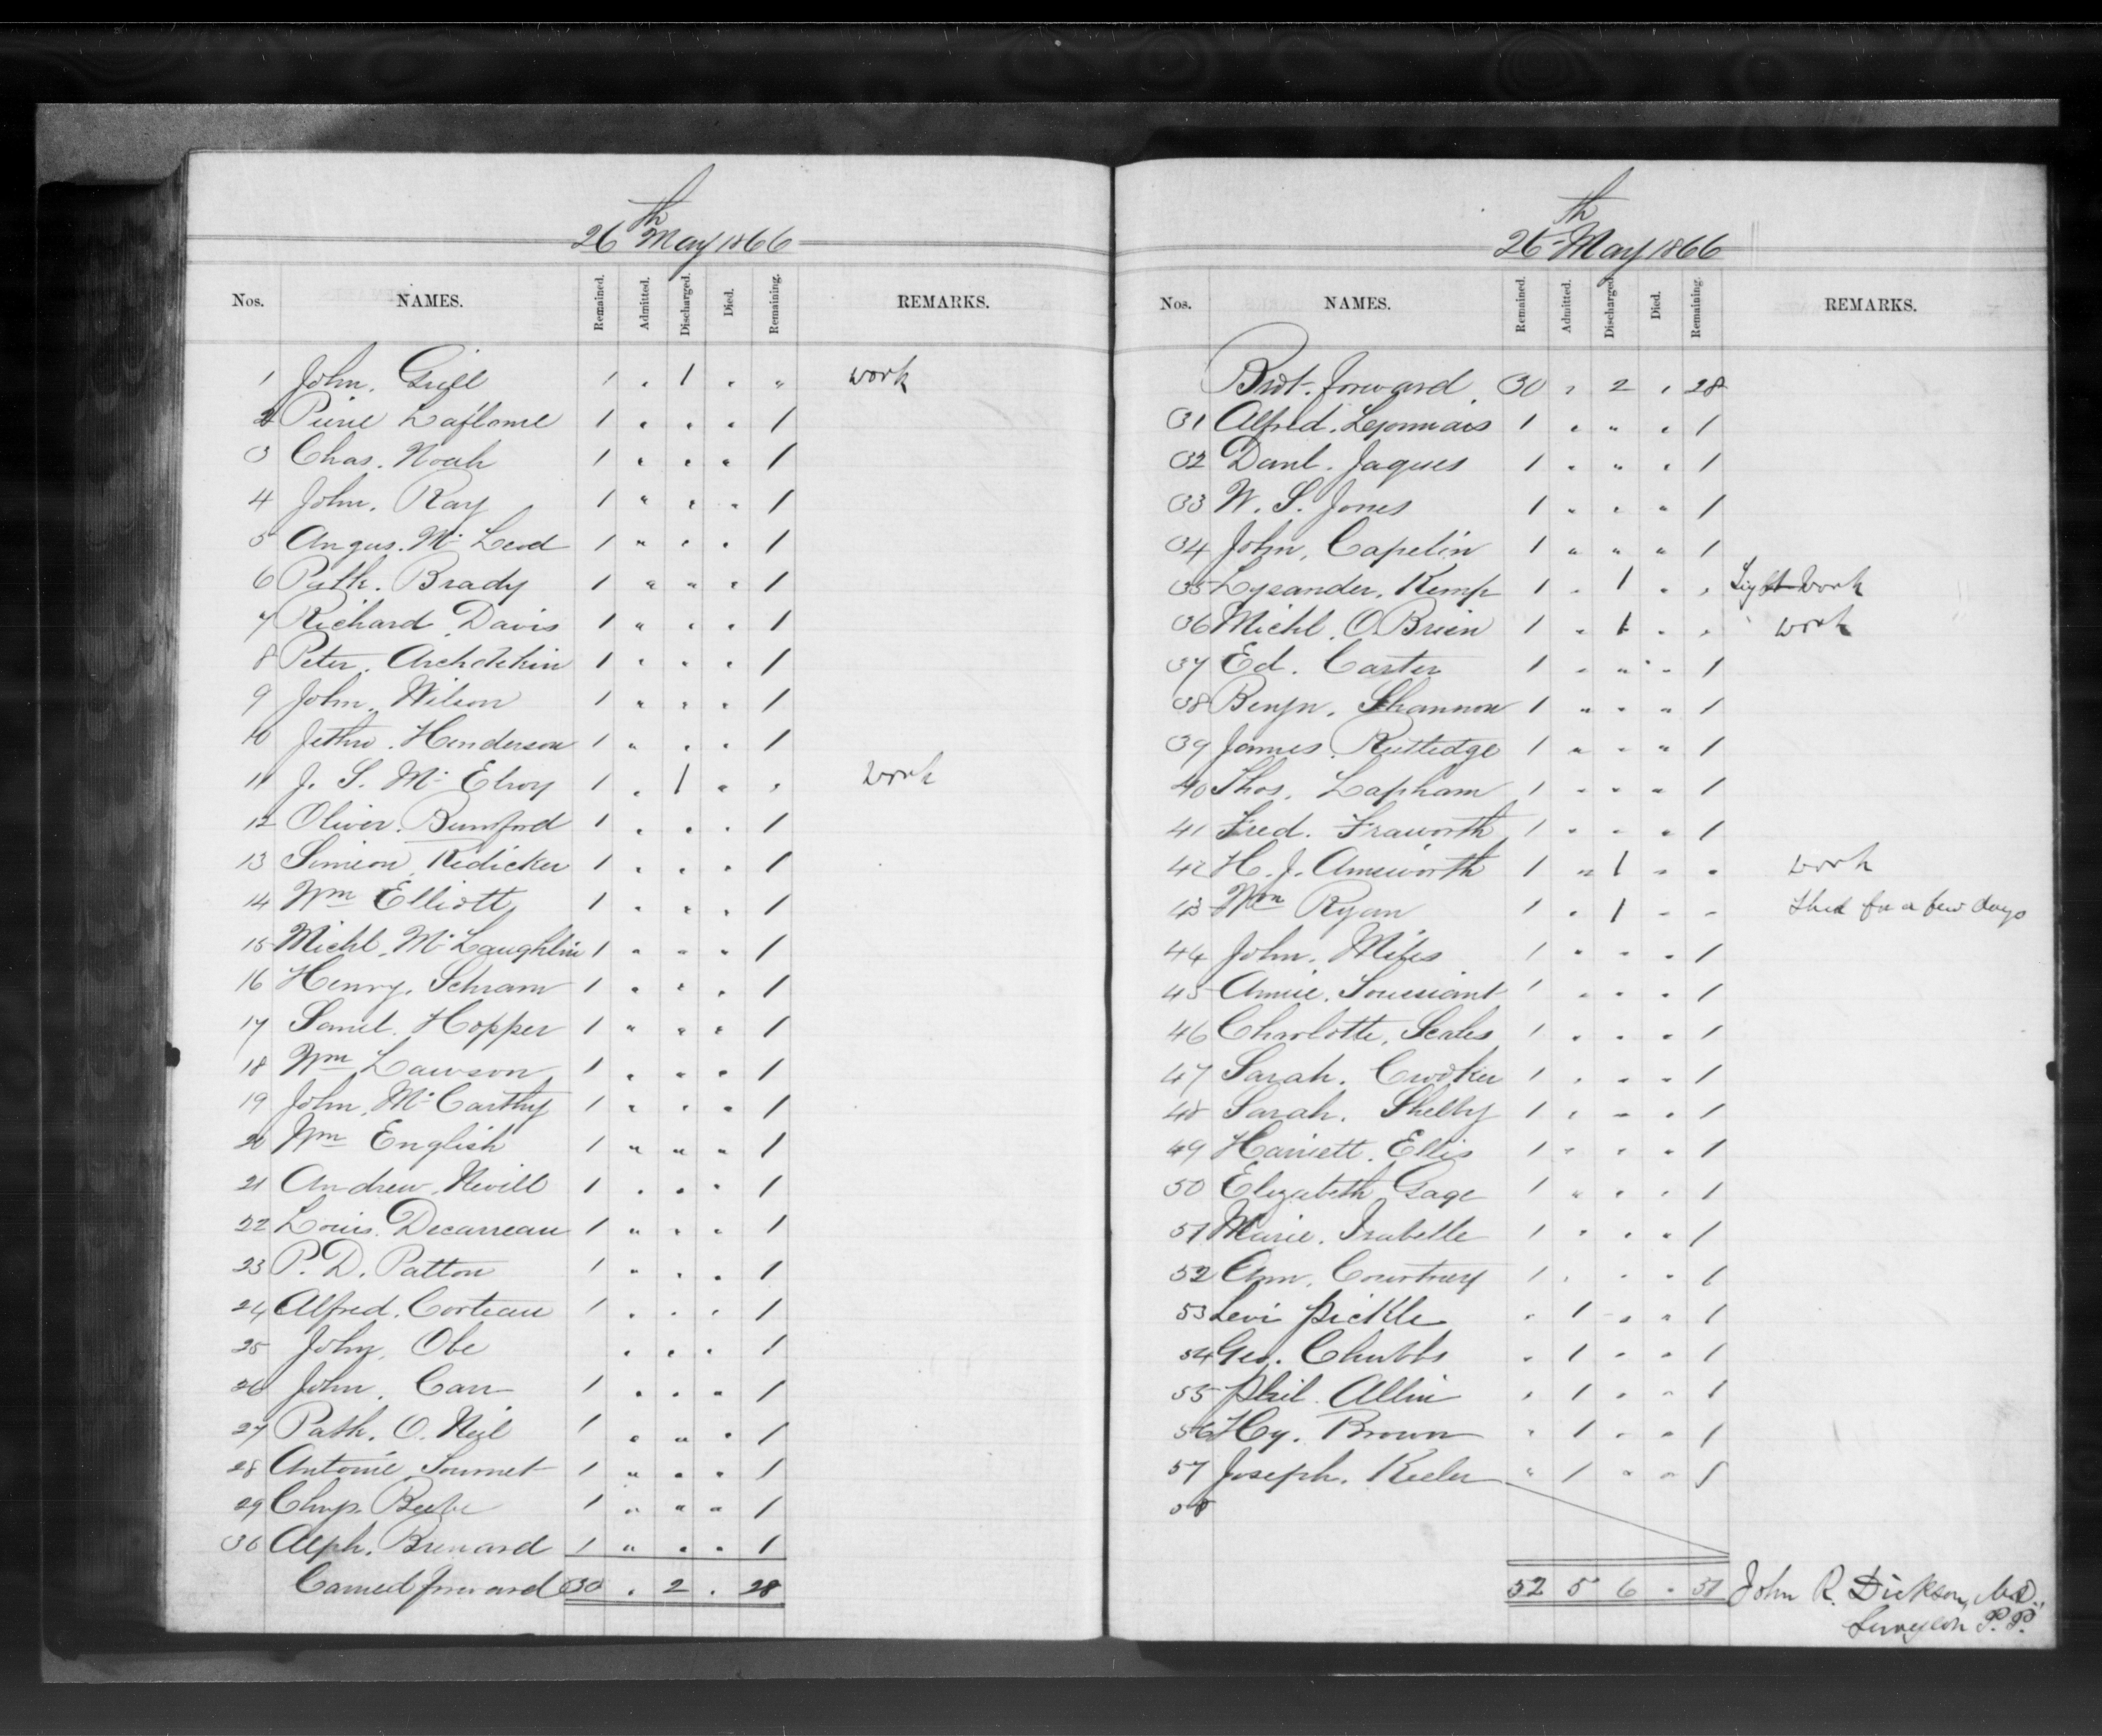 26th May 1866
Nos. NAMES. Remained. Admitted. Discharged. Died. Remaining. REMARKS.
1 John. Grill 1 . 1 . " work
2 Pierre Laflame 1 . . . 1
3 Chas. Noah 1 . . . 1
4 John. Ray 1 " . . 1
5 Angus. Mc Leod 1 " . . 1
6 Patk. Brady 1 " " . 1
7 Richard Davis 1 " . . 1
8 Peter. 1 . . . 1
9 John. Wilson 1 " . . 1
10 Jethro. Henderson 1 " . . 1
11 J. S. Mc Elroy 1 . 1 " . work
12 Oliver. Bumford 1 . . . 1
13 Simeon Redicker 1 . . . 1
14 Wm Elliott 1 . . . 1
15 Michl. Mc Laughlin 1 " " " 1
16 Henry. Schram 1 . . . 1
17 Saml. Hopper 1 " " . 1
18 Wm Lawson 1 . " . 1
19 John. Mc Carthy 1 . . . 1
20 Wm English 1 " " " 1
21 Andrew. Nevill 1 . . . 1
22 Louis. Decarreau 1 " . . 1
23 P. D. Patton 1 " . . 1
24 Alfred. Corteau 1 . . . 1
25 John. Obe . . . 1
26 John. Carr 1 . . " 1
27 Patk. O. Neil 1 . " . 1
28 Antonie 1 " . . 1
29 Chrys. Beebe 1 " " " 1
30 Alph. Brenard 1 " . . 1
Carried forward 30 . 2 . 28
26th May 1866
Nos. NAMES. Remained. Admitted. Discharged. Died. Remaining. REMARKS.
Brot. forward 30 . 2 . 28
31 Alfred. Lyonnais 1 . " . 1
32 Danl. Jaques 1 . " . 1
33 W. S. Jones 1 " . " 1
34 John. Capelin 1 " " " 1
35 Lysander. Kemp 1 . 1 . . Light work
36 Michl. O. Brien 1 . 1 . . work
37 Ed. Carter 1 . " . 1
38 Benjn. Shannon 1 " . " 1
39 James. Rutledge 1 " . " 1
40 Thos. Lapham 1 . . " 1
41 Fred. Fraworth 1 . . . 1
42 H. J. Ainsworth 1 " 1 . . work
43 Wm Ryan 1 . 1 . . Shed for a few days
44 John. Miles 1 . . . 1
45 Annie. 1 . . . 1
46 Charlotte. Scales 1 . . . 1
47 Sarah. Crooker 1 . . . 1
48 Sarah. Shelby 1 . . . 1
49 Harriett. Ellis 1 . . . 1
50 Elizabeth Gage 1 " . . 1
51 Marie. Isabelle 1 . . . 1
52 Ann. Courtney 1 . . . 1
53 Levi Pickle . 1 . . 1
54 Geo. Chubbs . 1 . . 1
55 Phil. Allin . 1 . . 1
56 Hy. Brown . 1 . . 1
57 Joseph. Keeler " 1 . . 1
58
52 5 6 . 51 John R. Dickson, M.D.,
Surgeon P.P.